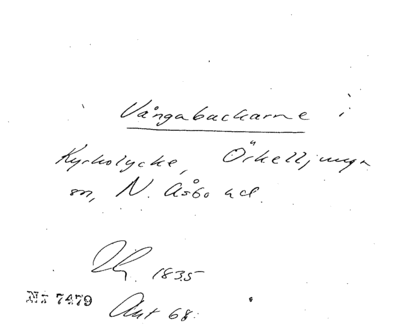 Vångabackarne i
Kyrkolycke, Örkelljunga
sn, N. Åsbo hd.
1835
Nr 7479
Akt 68.